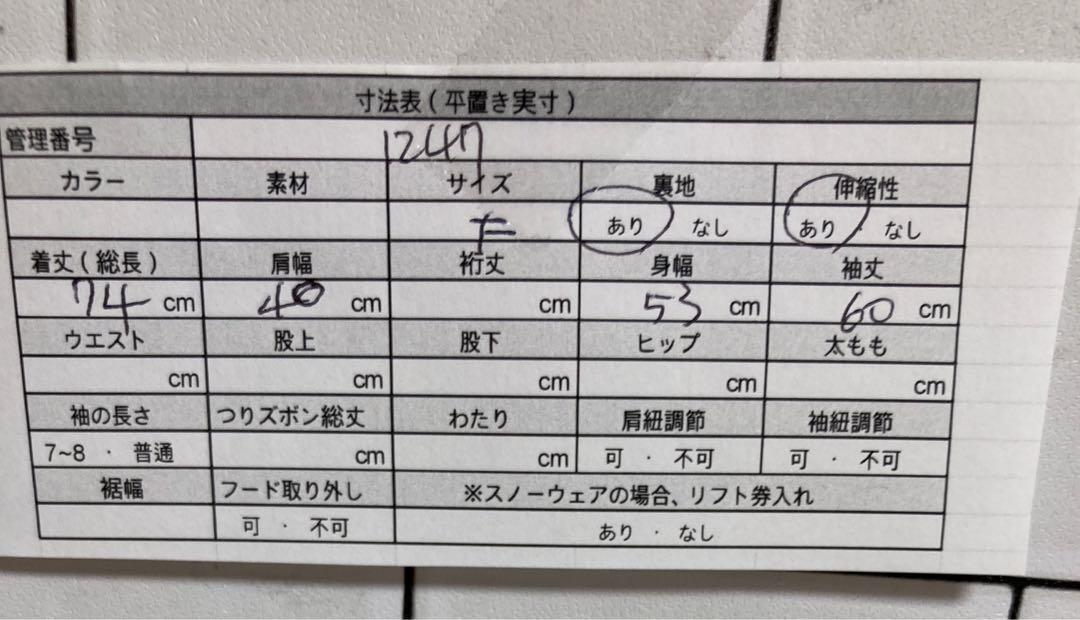 寸法表(平置き実寸)
管理番号 1247
カラー 素材 サイズ 裏地 伸縮性
あり なし あり ・ なし
着丈(総長) 肩幅 裄丈 身幅 袖丈
74 cm 40 cm cm 53 cm 60 cm
ウエスト 股上 股下 ヒップ 太もも
cm cm cm cm cm
袖の長さ つりズボン総丈 わたり 肩紐調節 袖紐調節
7~8 ・ 普通 cm cm 可 ・ 不可 可 ・ 不可
裾幅 フード取り外し ※スノーウェアの場合、リフト券入れ
可 ・ 不可 あり ・ なし